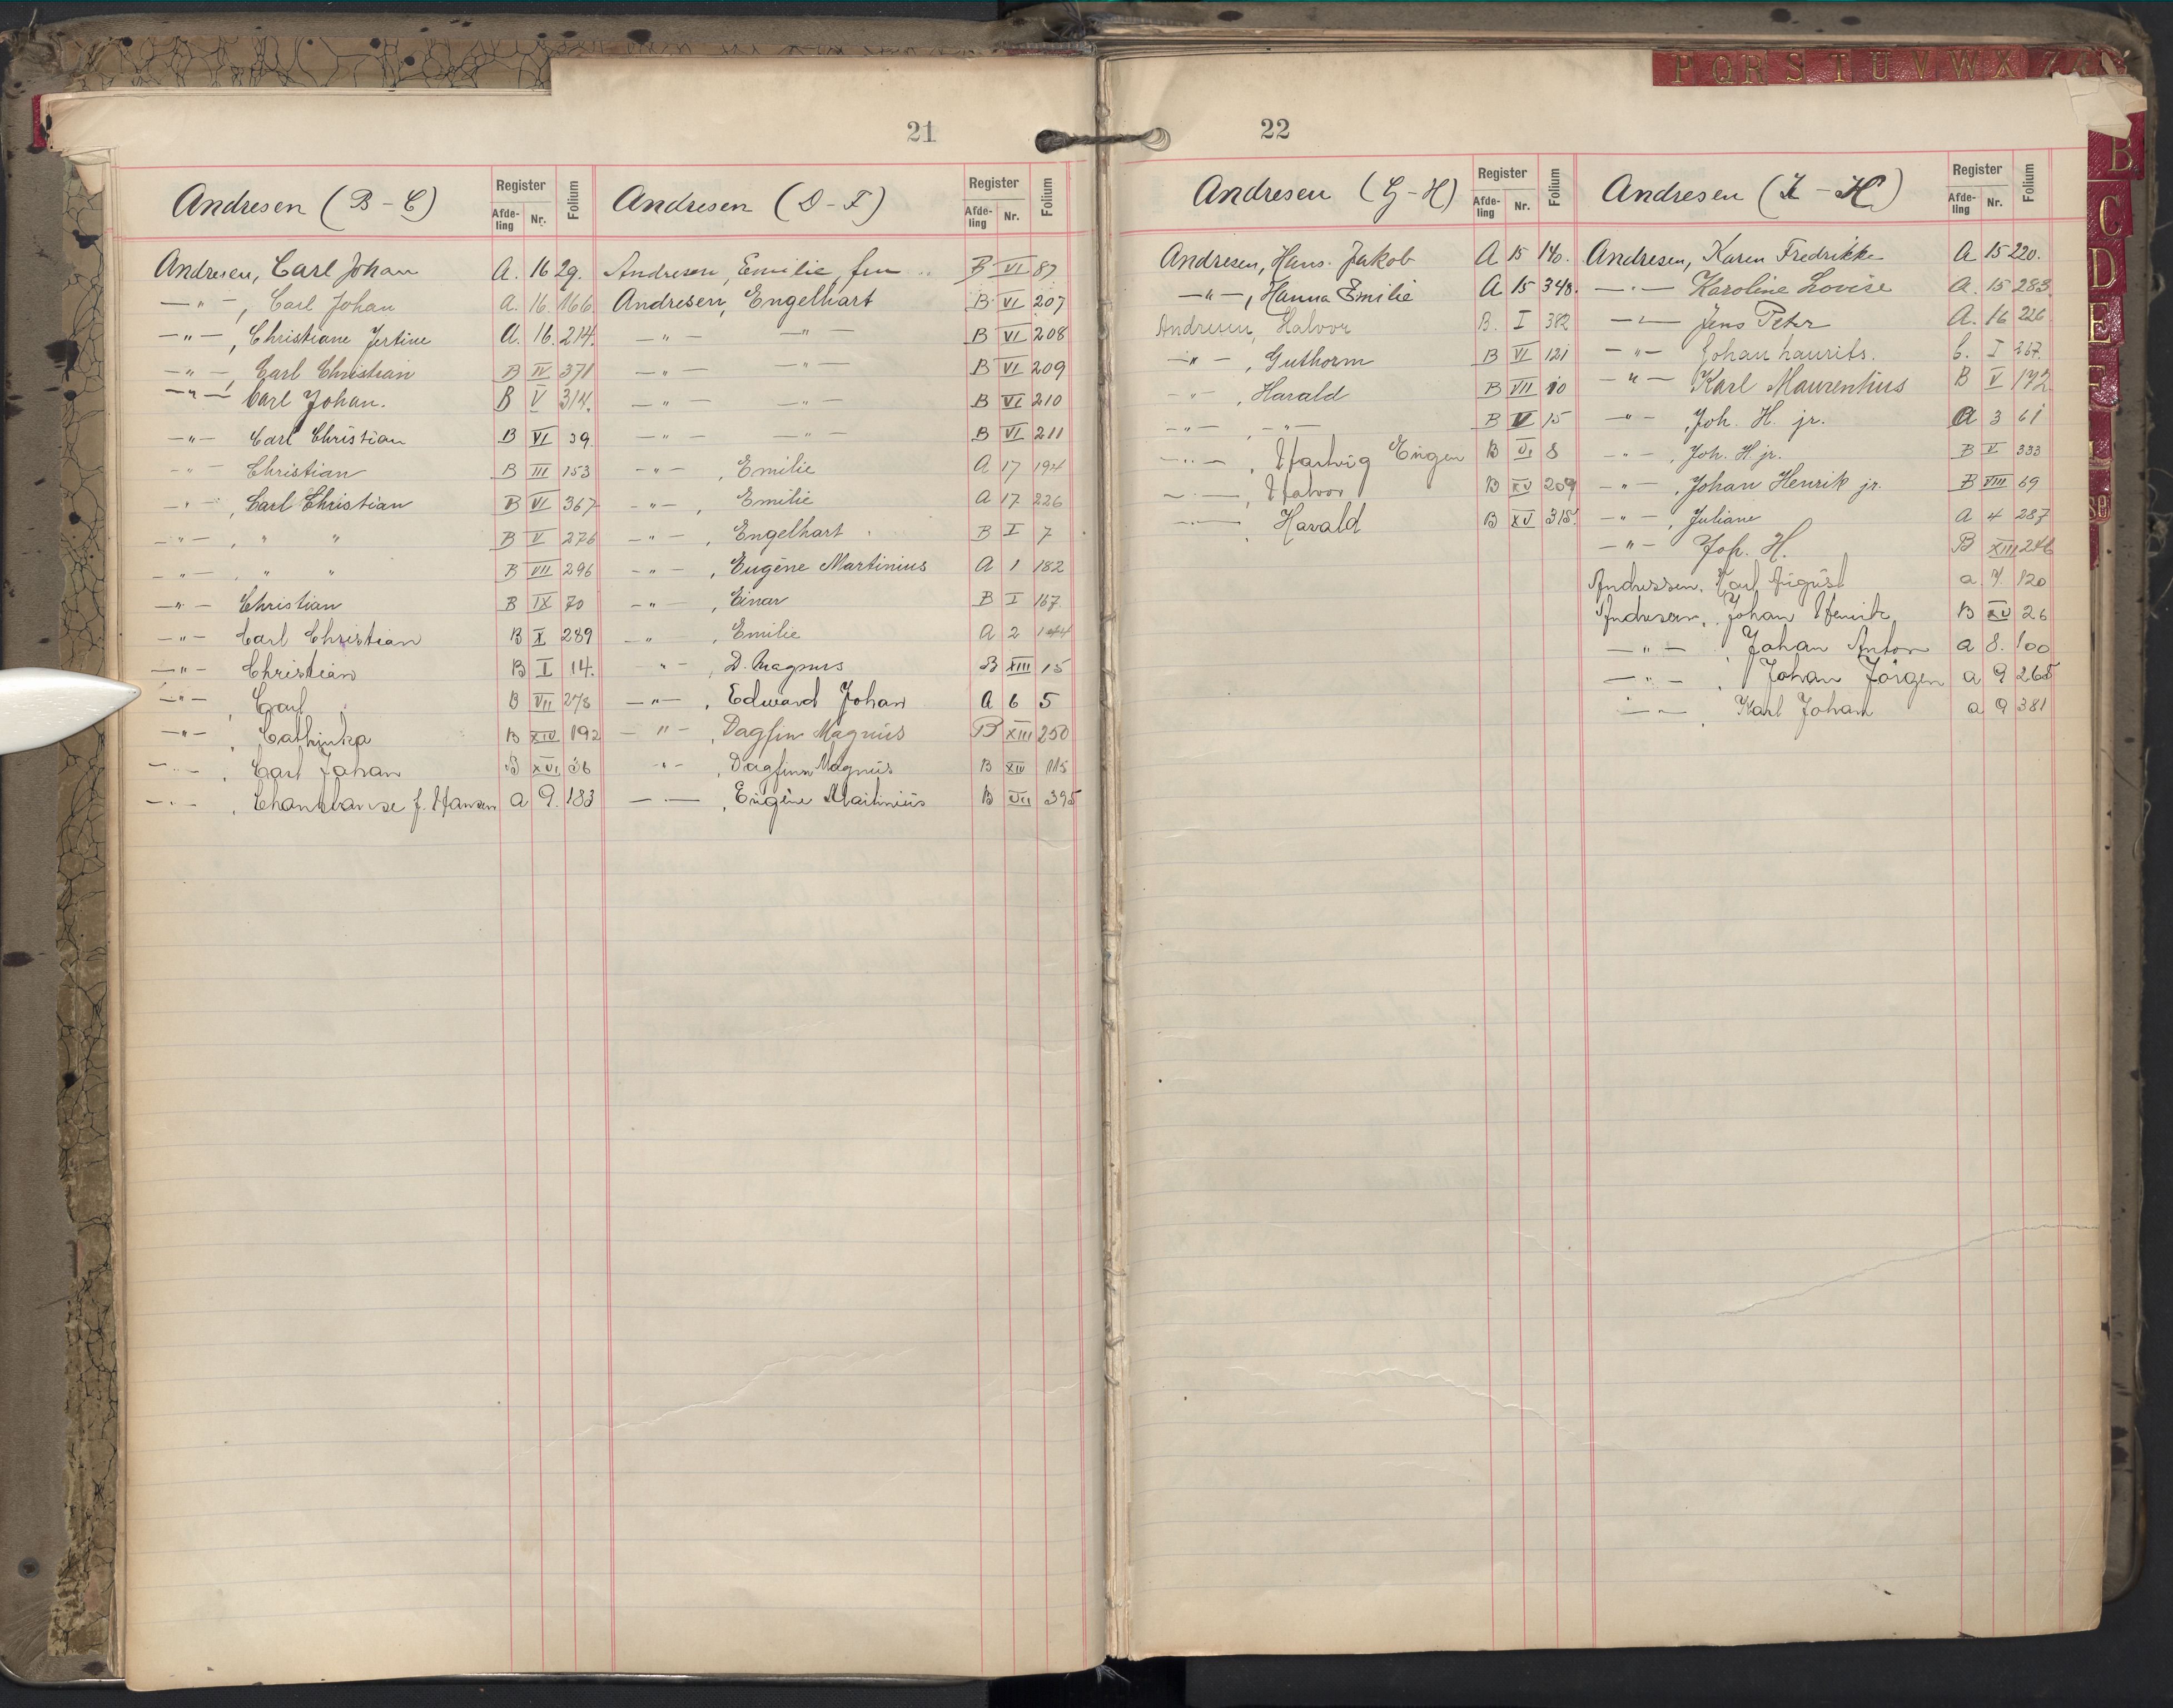 21
Andresen (B-C)
Register
Afde-
ling
Nr.
Folium
Andresen, Carl Johan A. 16 29.
—"—, Carl Johan A. 16. 166
—"—, Christiane Jertine A. 16. 214.
—"—, Carl Christian B IV 371
—"— Carl Johan. B V 314.
—"— Carl Christian B VI 39
—"— Christian B III 153
—"—, Carl Christian B VI 367
—"—, " " B V 276
—"—, " " B VII 296
—"— Christian B IX 70
—"— Carl Christian B X 289
—"— Christian B I 14.
—"—, Carl B VII 278
—"—, Cathinka B XIV 192
—"—, Carl Johan B XVI 36
—"—, f. Hansen a 9. 183
Andresen (D-F)
Register
Afde-
ling
Nr.
Folium
Andresen, Emilie fru B VI 87
Andresen, Engelhart B VI 207
—"— —"— B VI 208
—"— —"— B VI 209
—"— —"— B VI 210
—"— —"— B VI 211
—"—, Emilie A 17 194
—"—, Emilie A 17 226
—"—, Engelhart B I 7
—"—, Eugène Martinius A 1 182
—"—, Einar B I 167
—"—, Emilie A 2 144
—"—, D. Magnus B XIII 15
—"—, Edward Johan A 6 5
—"—, Dagfin Magnus B XIII 250
—"—, Dagfinn Magnus B XIV 115
—"—, Eugène Martinius B VII 395
22
Andresen (G-H)
Register
Afde-
ling
Nr.
Folium
Andresen, Hans Jakob A 15 140.
—"—, Hanna Emilie A 15 348.
Andresen, Halvor B. I 382
—"—, Guthorm B VI 121
—"—, Harald B VII 10
—"—, —"— B V 15
—"—, Hartvig Eugen B VI 8
—"—, Halvor B XV 209
—"—, Harald B XV 315.
Andresen (I-K)
Register
Afde-
ling
Nr.
Folium
Andresen, Karen Fredrikke A 15 220.
—"— Karoline Lovise A. 15 283.
—"— Jens Peter A. 16 226
—"— Johan Laurits. b. I 367.
—"— Karl Maurentius B V 172
—"—, Joh. H. jr. A 3 61
—"—, Joh. H. jr. B V 333
—"—, Johan Henrik jr. B VIII 69
—"—, Juliane A 4 287
—"— Joh. H. B XIII 246
Andressen, Karl August a 7. 120
Andresen, Johan Henrik B XV 26
—"—, Johan Anton a 8. 100
—"—, Johan Jörgen a 9 265
—"—, Karl Johan a 9 381
P Q R S T U V W X
B
C
D
E